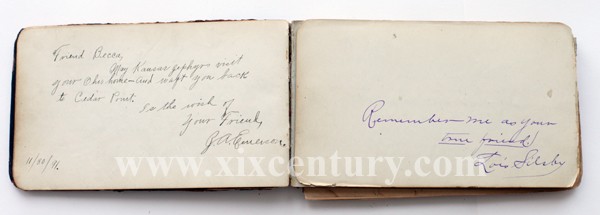 Friend Becca,
May Kansas Zephyrs visit
your Ohio home—and waft you back
to Cedar Point.
Is the wish of
Your Friend,
J.A. Emerson.
11/30/96.
Remember me as your
true friend.
Lois Silsby
www.xixcentury.com